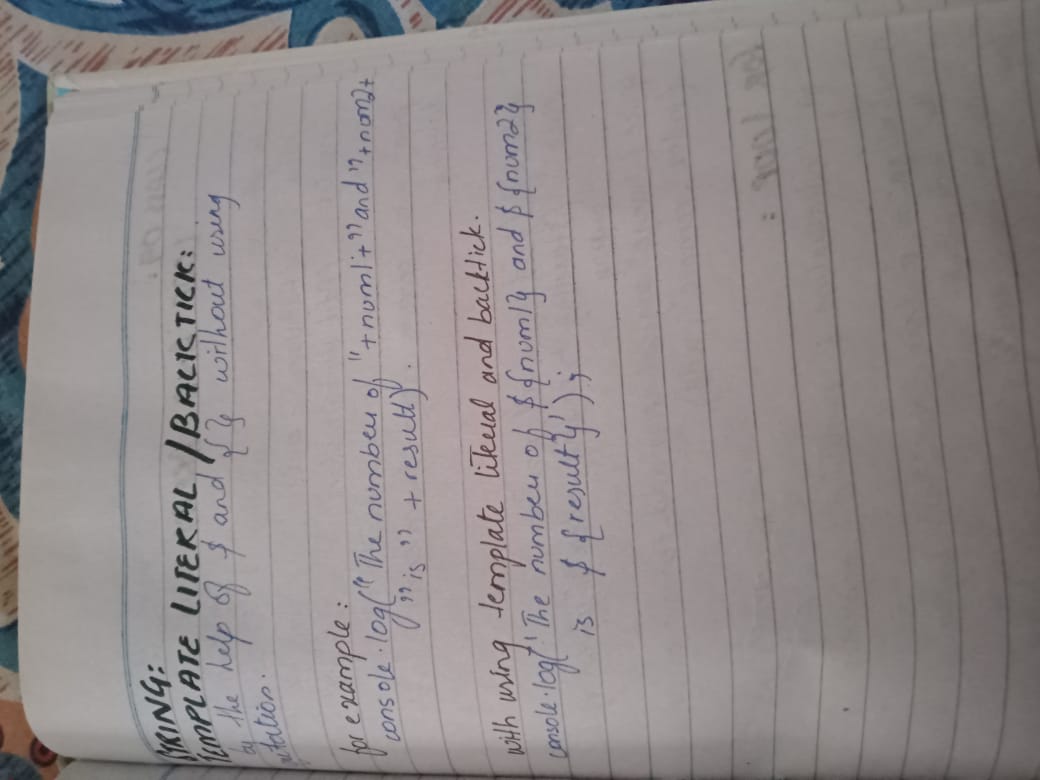 STRING:
TEMPLATE LITERAL / BACKTICK:
by the help of $ and {} without using
notation.
for example:
console.log("The number of "+num1+" and "+num2+
" is " + result).
with using template literal and backtick.
console.log(`The number of ${num1} and ${num2}
is ${result}`);